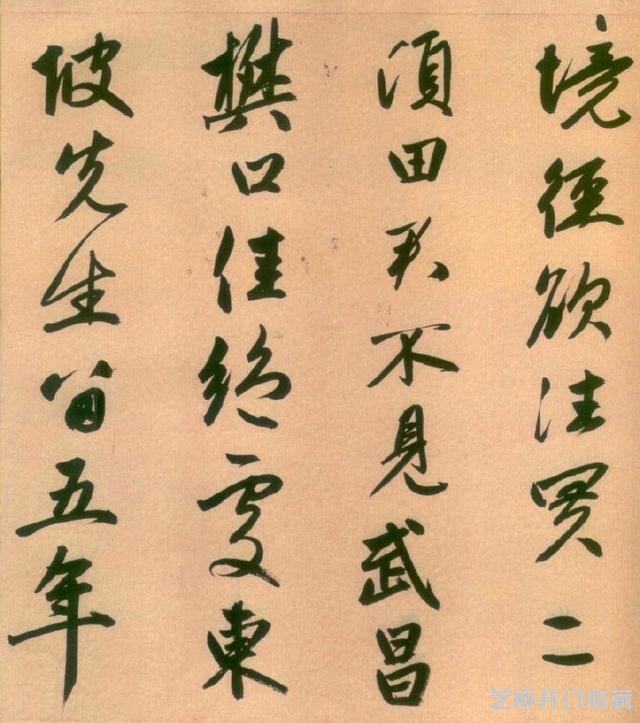 境徑欲往買二
頃田君不見武昌
樊口佳絕處東
坡先生留五年
芝麻开门收藏